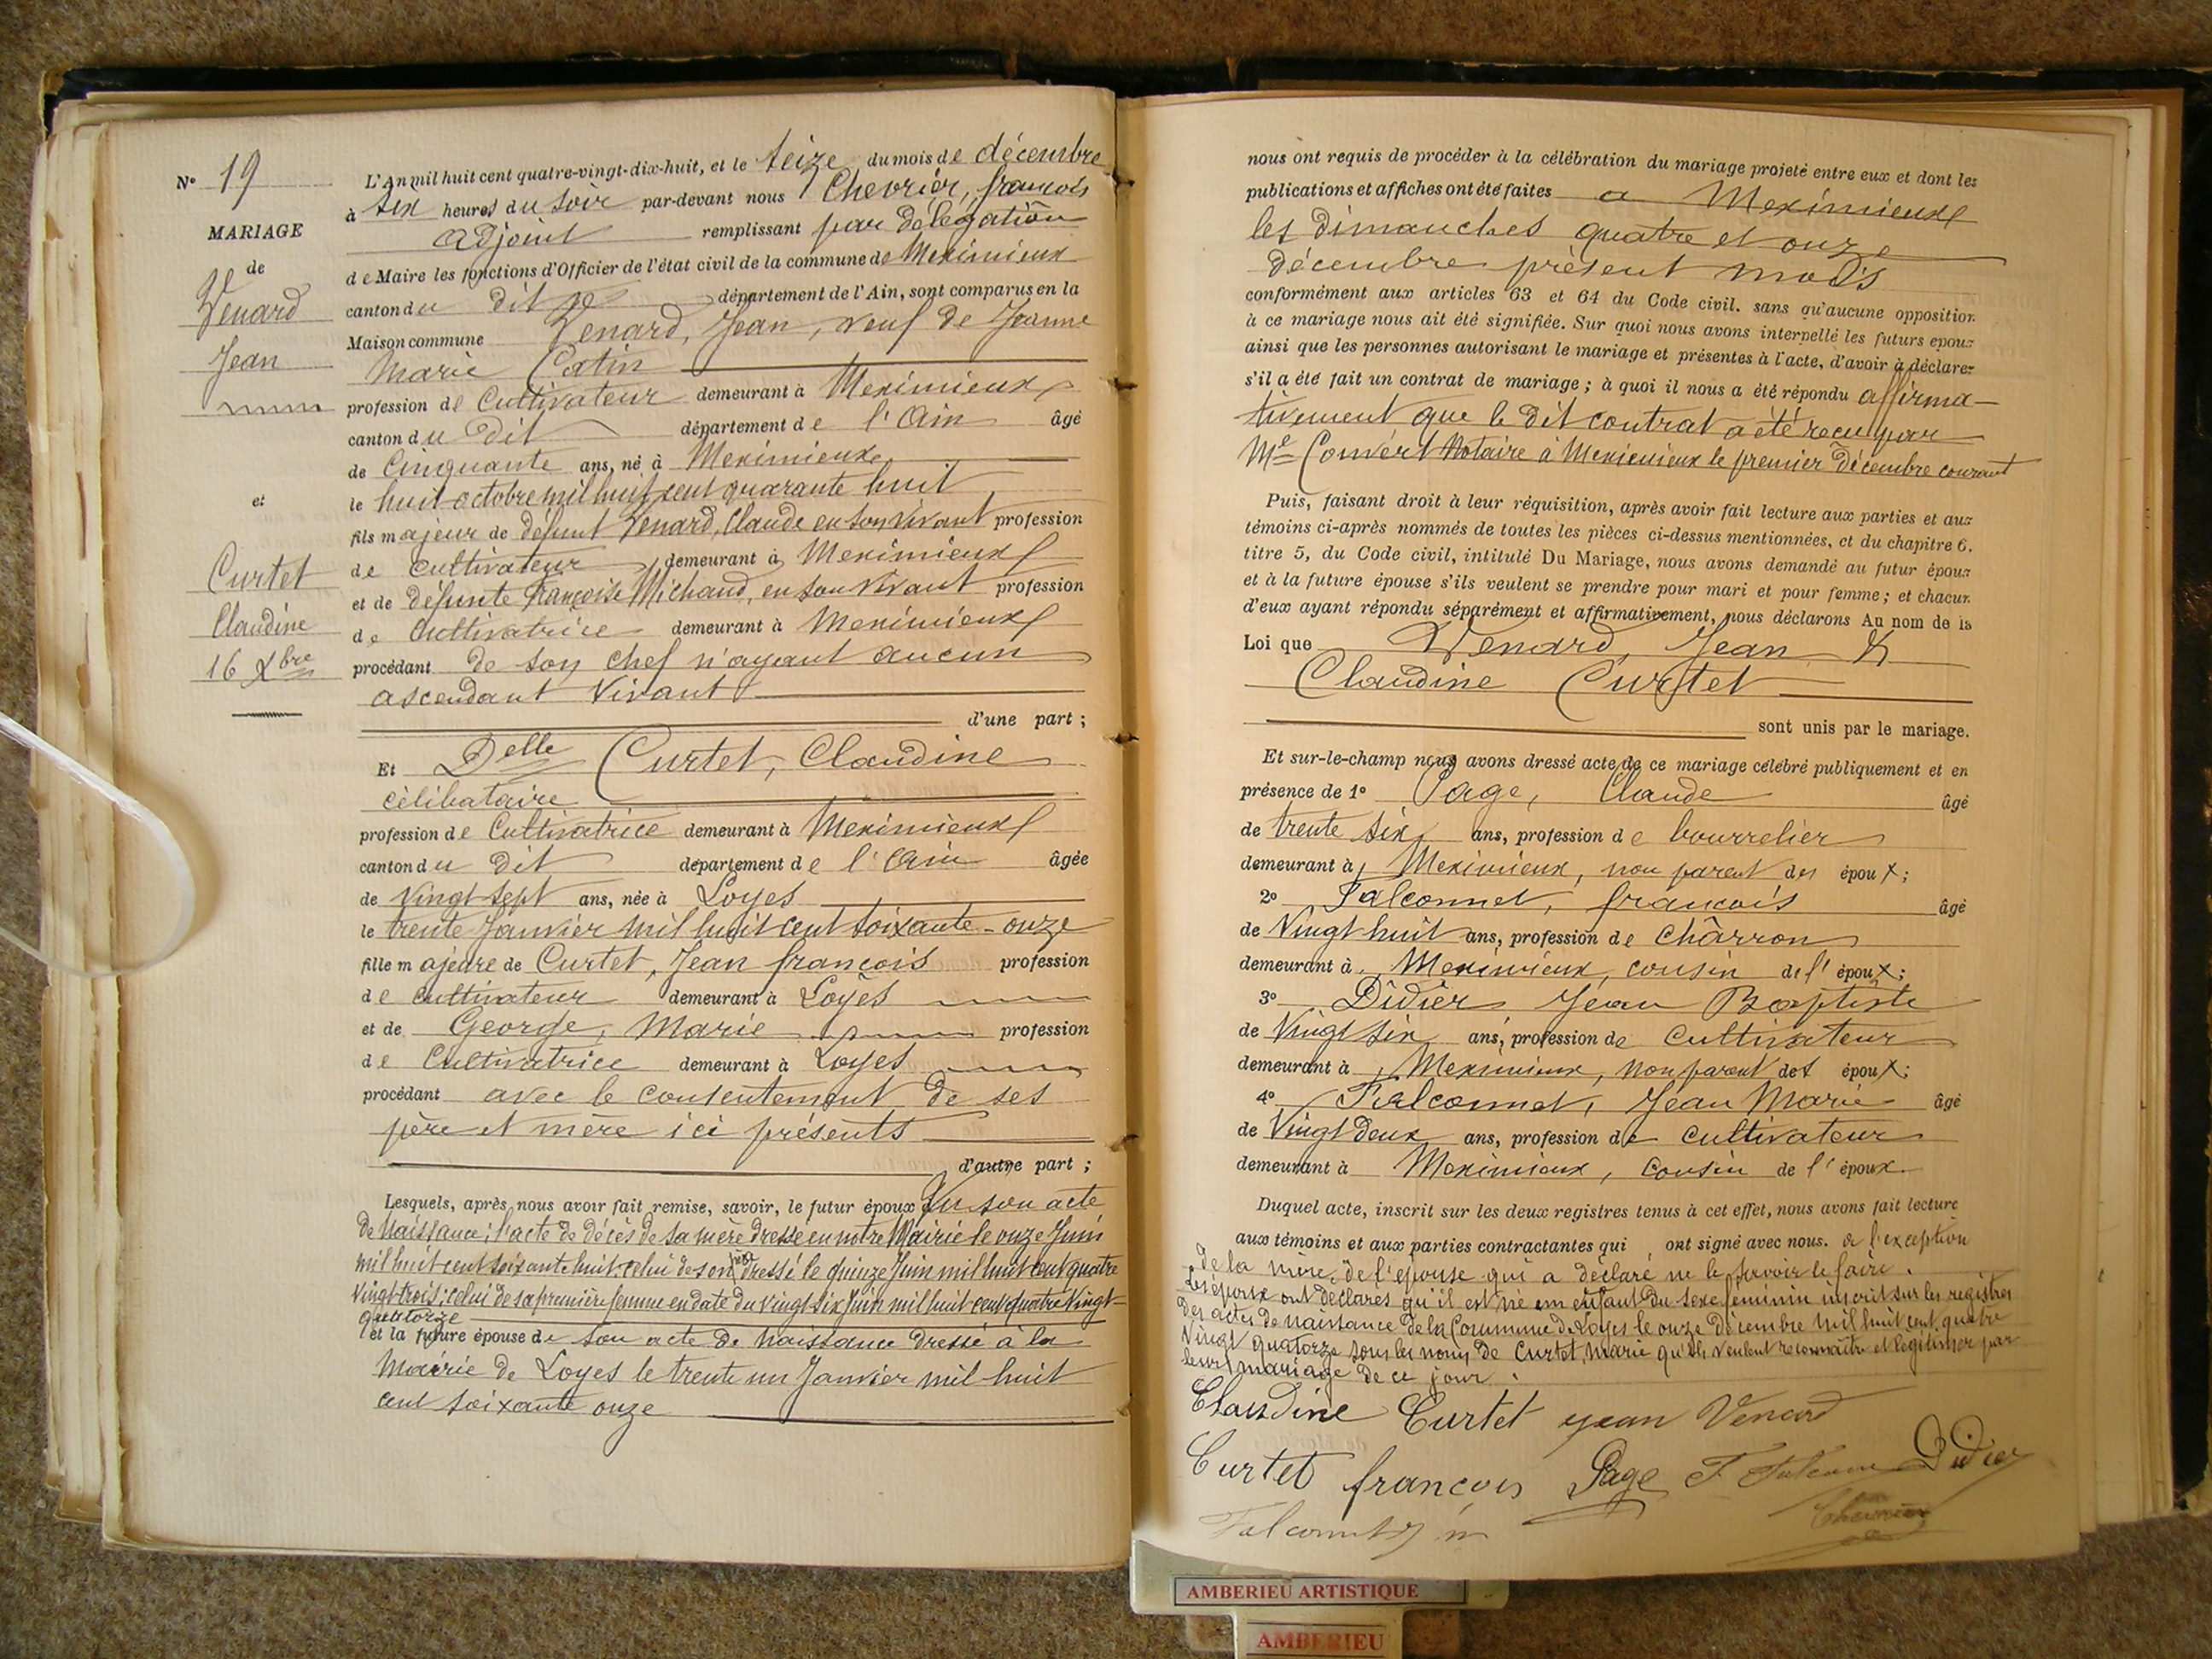 N° 19
MARIAGE
de
Venard
Jean
et
Curtet
Claudine
16 Xbre
L'An mil huit cent quatre-vingt-dix-huit, et le seize du mois de décembre
à six heures du soir par-devant nous Chevrier, françois
adjoint remplissant par délégation
de Maire les fonctions d'Officier de l'état civil de la commune de Meximieux
canton du dit département de l'Ain, sont comparus en la
Maison commune Venard, Jean, veuf de Jeanne
Marie Catin
profession de Cultivateur demeurant à Meximieux
canton du dit département de l'Ain âgé
de Cinquante ans, né à Meximieux
le huit octobre mil huit cent quarante huit
fils majeur de défunt Venard, Claude en son vivant profession
de Cultivateur demeurant à Meximieux
et de défunte Françoise Michaud, en son vivant profession
de Cultivatrice demeurant à Meximieux
procédant de son chef n'ayant aucun
ascendant vivant
d'une part ;
Et Delle Curtet, Claudine
célibataire
profession de Cultivatrice demeurant à Meximieux
canton du dit département de l'Ain âgée
de vingt sept ans, née à Loyes
le trente Janvier mil huit cent soixante-onze
fille majeure de Curtet, Jean françois profession
de cultivateur demeurant à Loyes
et de George, Marie profession
de Cultivatrice demeurant à Loyes
procédant avec le consentement de ses
père et mère ici présents
d'autre part ;
Lesquels, après nous avoir fait remise, savoir, le futur époux du son acte
de Naissance ; l'acte de décès de sa mère dressé en notre Mairie le onze Juin
mil huit cent soixante huit, celui de son père dressé le quinze Juin mil huit cent quatre
vingt trois ; celui de sa première femme en date du vingt six Juin mil huit cent quatre vingt-
quatorze
et la future épouse de son acte de Naissance dressé à la
Mairie de Loyes le trente un Janvier mil huit
cent soixante onze
nous ont requis de procéder à la célébration du mariage projeté entre eux et dont les
publications et affiches ont été faites a Meximieux
les dimanches quatre et onze
décembre présent mois
conformément aux articles 63 et 64 du Code civil. sans qu'aucune opposition
à ce mariage nous ait été signifiée. Sur quoi nous avons interpellé les futurs époux
ainsi que les personnes autorisant le mariage et présentes à l'acte, d'avoir à déclarer
s'il a été fait un contrat de mariage ; à quoi il nous a été répondu affirma-
tivement que le dit contrat a été reçu par
Me Convert Notaire à Meximieux le premier Décembre courant
Puis, faisant droit à leur réquisition, après avoir fait lecture aux parties et aux
témoins ci-après nommés de toutes les pièces ci-dessus mentionnées, et du chapitre 6.
titre 5, du Code civil, intitulé Du Mariage, nous avons demandé au futur époux
et à la future épouse s'ils veulent se prendre pour mari et pour femme ; et chacun
d'eux ayant répondu séparément et affirmativement, nous déclarons Au nom de la
Loi que Venard, Jean &
Claudine Curtet
sont unis par le mariage.
Et sur-le-champ nous avons dressé acte de ce mariage célébré publiquement et en
présence de 1° Page, Claude âgé
de trente six ans, profession de bourrelier
demeurant à Meximieux, non parent des époux ;
2° Falconnet, françois âgé
de Vingt huit ans, profession de Chârron
demeurant à Meximieux, cousin de l'époux ;
3° Didier, Jean Baptiste
de Vingt six ans, profession de Cultivateur
demeurant à Meximieux, non parent des époux ;
4° Falconnet, Jean Marie âgé
de Vingt deux ans, profession de Cultivateur
demeurant à Meximieux, cousin de l'époux.
Duquel acte, inscrit sur les deux registres tenus à cet effet, nous avons fait lecture
aux témoins et aux parties contractantes qui ont signé avec nous. a l'exception
de la mère de l'épouse qui a déclaré ne le savoir le faire.
Les époux ont déclarés qu'il est né un enfant du sexe féminin inscrit sur les registres
des actes de naissance de la Commune de Loyes le onze décembre mil huit cent quatre
vingt quatorze sous les noms de Curtet, Marie qu'ils veulent reconnaître et légitimer par
leur mariage de ce jour.
Claudine Curtet jean Venard
Curtet francois Page F Falconnet Didier
Falconnet J m Chevrier
AMBERIEU ARTISTIQUE
AMBERIEU